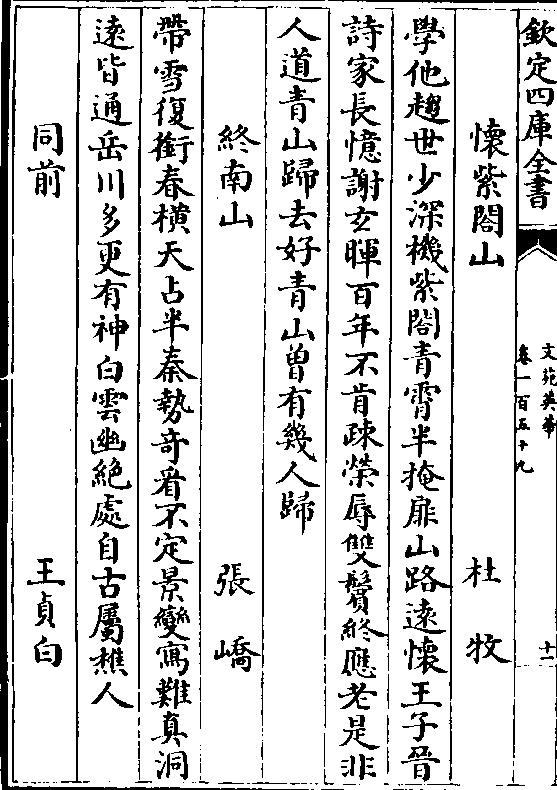 欽定四庫全書
文苑英華
卷一百五十九
十一
懷紫閣山 杜牧
學他趨世少深機紫閣青霄半掩扉山路遠懷王子晉
詩家長憶謝玄暉百年不肯疎榮辱雙鬢終應老是非
人道青山歸去好青山曾有幾人歸
終南山 張喬
帶雪復銜春橫天占半秦勢奇看不定景變寫難真洞
遠皆通岳川多更有神白雲幽絶處自古屬樵人
同前 王貞白